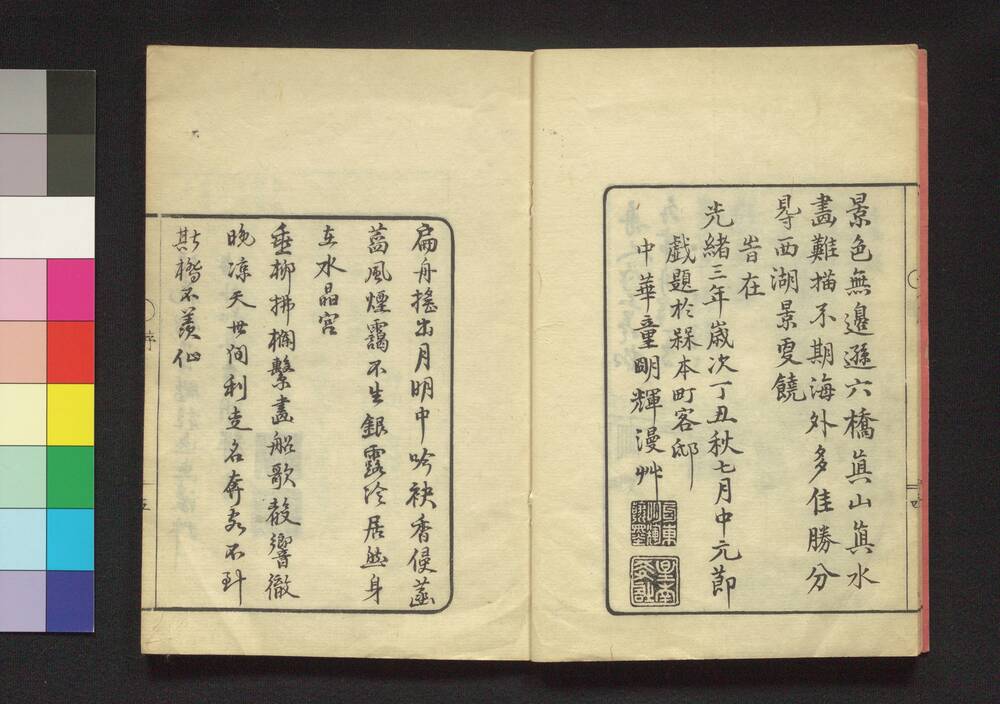 景色無邊遜六橋真山真水
畵難描不期海外多佳勝分
得西湖景更饒
旹在
光緒三年歲次丁丑秋七月中元節
戲題於槑本町客邸
中華童明輝漫艸
扁舟搖出月明中吟袂香侵菡
萏風煙靄不生銀露冷居然身
在水晶宮
垂柳拂欄繫畵船歌殽響徹
晚凉天世間利走名奔客不到
斯橋不羨仙
序
五